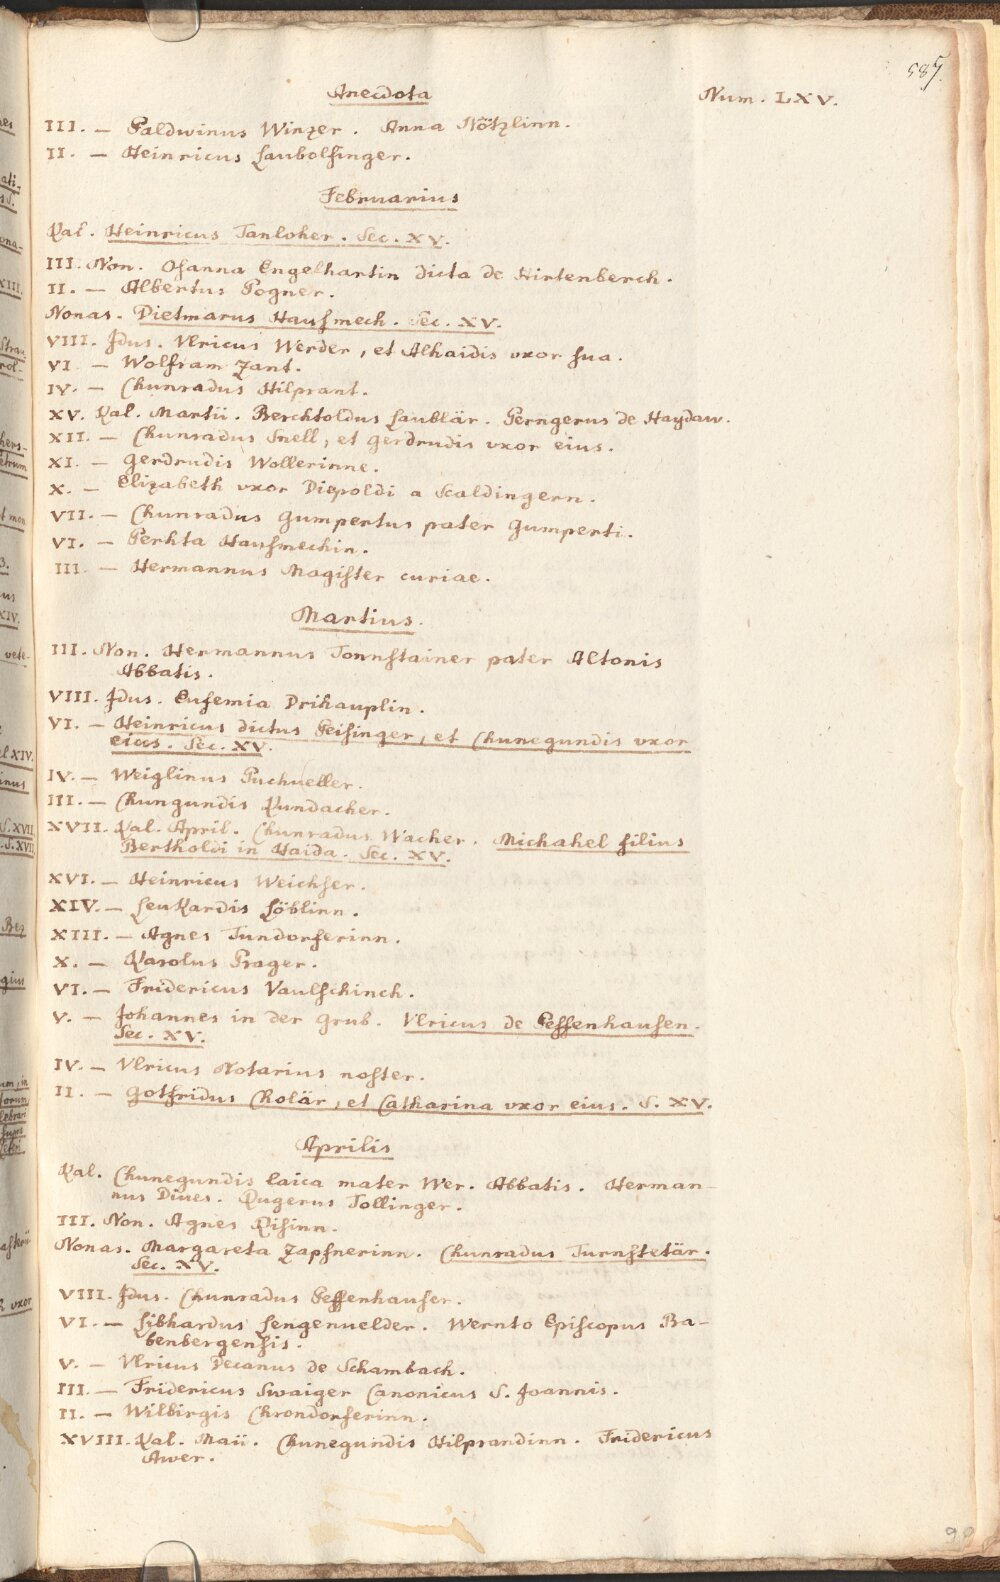 587.
Anecdota
Num. LXV.
III. — Paldwinus Winzer. Anna Nötzlinn.
II. — Heinricus Laubolfinger.
Februarius
Kal. Heinricus Tanloher. Sec. XV.
III. Non. Osanna Engelhartin dicta de Hirtenberch.
II. — Albertus Pogner.
Nonas. Dietmarus Hausmech. Sec. XV.
VIII. Idus. Vlricus Werder, et Alhaidis vxor sua.
VI. — Wolfram Zant.
IV. — Chunradus Hilprant.
XV. Kal. Martii. Berchtoldus Laublär. Perngerus de Haydaw.
XII. — Chunradus Snell, et Gerdrudis vxor eius.
XI. — Gerdrudis Wollerinne.
X. — Elizabeth vxor Diepoldi a Scaldingern.
VII. — Chunradus Gumpertus pater Gumperti.
VI. — Perhta Hausmechin.
III. — Hermannus Magister curiae.
Martius.
III. Non. Hermannus Tonnstainer pater Altonis
Abbatis.
VIII. Idus. Eufemia Drikauplin.
VI. — Heinricus dictus Peisinger, et Chunegundis vxor
eius. Sec. XV.
IV. — Weiglinus Puchueller.
III. — Chungundis Kundacher.
XVII. Kal. April. Chunradus Wacher. Michahel filius
Bertholdi in Haida. Sec. XV.
XVI. — Heinricus Weichser.
XIV. — Leukardis Löblinn.
XIII. — Agnes Tundorferinn.
X. — Karolus Prager.
VI. — Fridericus Vaulschinch.
V. — Johannes in der Grub. Vlricus de Peffenhausen.
Sec. XV.
IV. — Vlricus Notarius noster.
II. — Gotfridus Cholär, et Catharina vxor eius. S. XV.
Aprilis
Kal. Chunegundis laica mater Wer. Abbatis. Herman-
nus Diues. Rugerus Tollinger.
III. Non. Agnes Risinn.
Nonas. Margareta Zapfnerinn. Chunradus Turnstetär.
Sec. XV.
VIII. Idus. Chunradus Peffenhauser.
VI. — Libhardus Lengenuelder. Wernto Episcopus Ba-
benbergensis.
V. — Vlricus Decanus de Schambach.
III. — Fridericus Swaiger Canonicus S. Joannis.
II. — Wilbirgis Chrondorferinn.
XVIII. Kal. Maii. Chunegundis Hilprandinn. Fridericus
Awer.
90